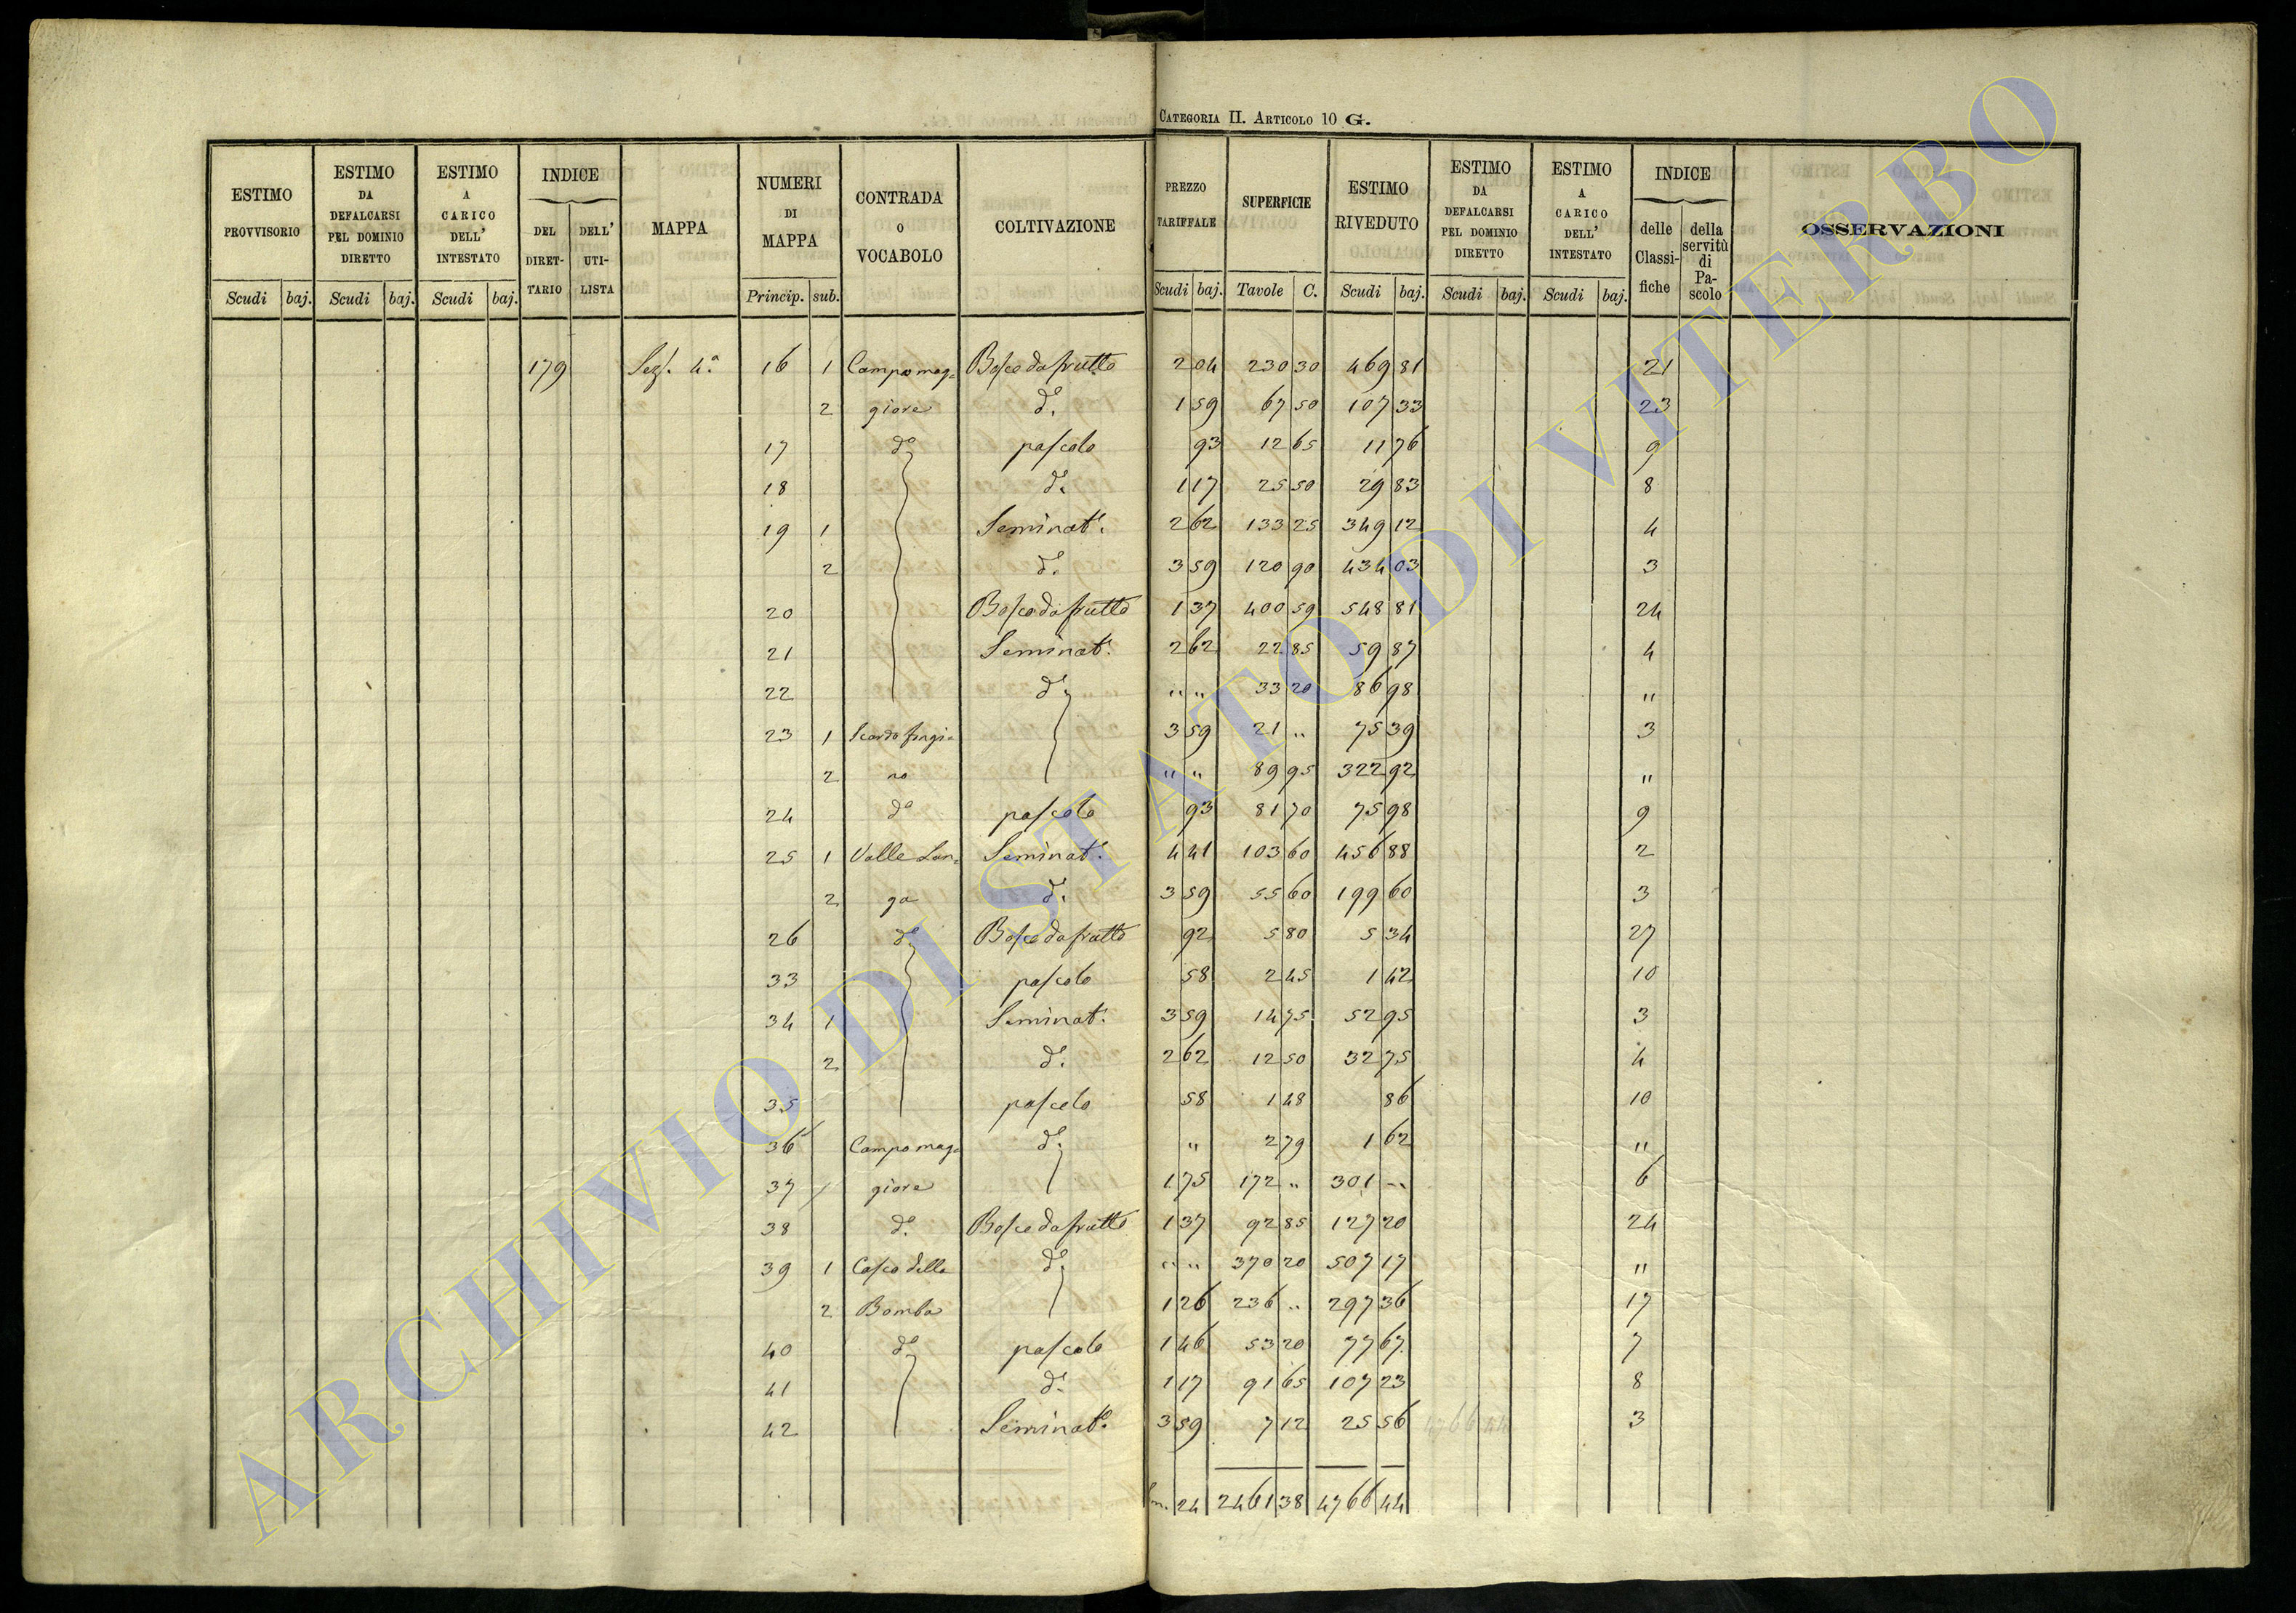 CATEGORIA II. ARTICOLO 10 G.
ESTIMO PROVVISORIO | ESTIMO DA DEFALCARSI PEL DOMINIO DIRETTO | ESTIMO A CARICO DELL' INTESTATO | INDICE DEL DIRET-TARIO | DELL' UTI-LISTA | MAPPA | NUMERI DI MAPPA | CONTRADA O VOCABOLO | COLTIVAZIONE | PREZZO TARIFFALE | SUPERFICIE | ESTIMO RIVEDUTO | ESTIMO DA DEFALCARSI PEL DOMINIO DIRETTO | ESTIMO A CARICO DELL' INTESTATO | INDICE delle Classi-fiche | della servitù di Pa-scolo | OSSERVAZIONI
Scudi | baj. | Scudi | baj. | Scudi | baj. | Princip. | sub. | Scudi | baj. | Tavole | C. | Scudi | baj. | Scudi | baj. | Scudi | baj.
179 Sez. 4.ª 16 1 Campo mag= Bosco da frutto 2 04 230 30 469 81 21
2 giore d.º 1 59 67 50 107 33 23
17 d.º pascolo 93 12 65 11 76 9
18 d.º 1 17 25 50 29 83 8
19 1 Seminat.º 2 62 133 25 349 12 4
2 d.º 3 59 120 90 434 03 3
20 Bosco da frutto 1 37 400 59 548 81 24
21 Seminat.º 2 62 22 85 59 87 4
22 d.º " " 33 20 86 98 "
23 1 3 59 21 " 75 39 3
2 no " " 89 95 322 92 "
24 d.º pascolo 93 81 70 75 98 9
25 1 Valle Lun= Seminat.º 4 41 103 60 456 88 2
2 ga d.º 3 59 55 60 199 60 3
26 d.º Bosco da frutto 92 5 80 5 34 27
33 pascolo 58 2 45 1 42 10
34 1 Seminat.º 3 59 14 75 52 95 3
2 d.º 2 62 12 50 32 75 4
35 pascolo 58 1 48 86 10
36 Campo mag= d.º " 2 79 1 62 "
37 / giore 1 75 172 " 301 -- 6
38 d.º Bosco da frutto 1 37 92 85 127 20 24
39 1 Casco della d.º " " 370 20 507 17 "
2 Bomba 1 26 236 " 297 36 17
40 d.º pascolo 1 46 53 20 77 67 7
41 d.º 1 17 91 65 107 23 8
42 Seminat.º 3 59 7 12 25 56 4766 44 3
24 2461 38 4766 44
ARCHIVIO DI STATO DI VITERBO